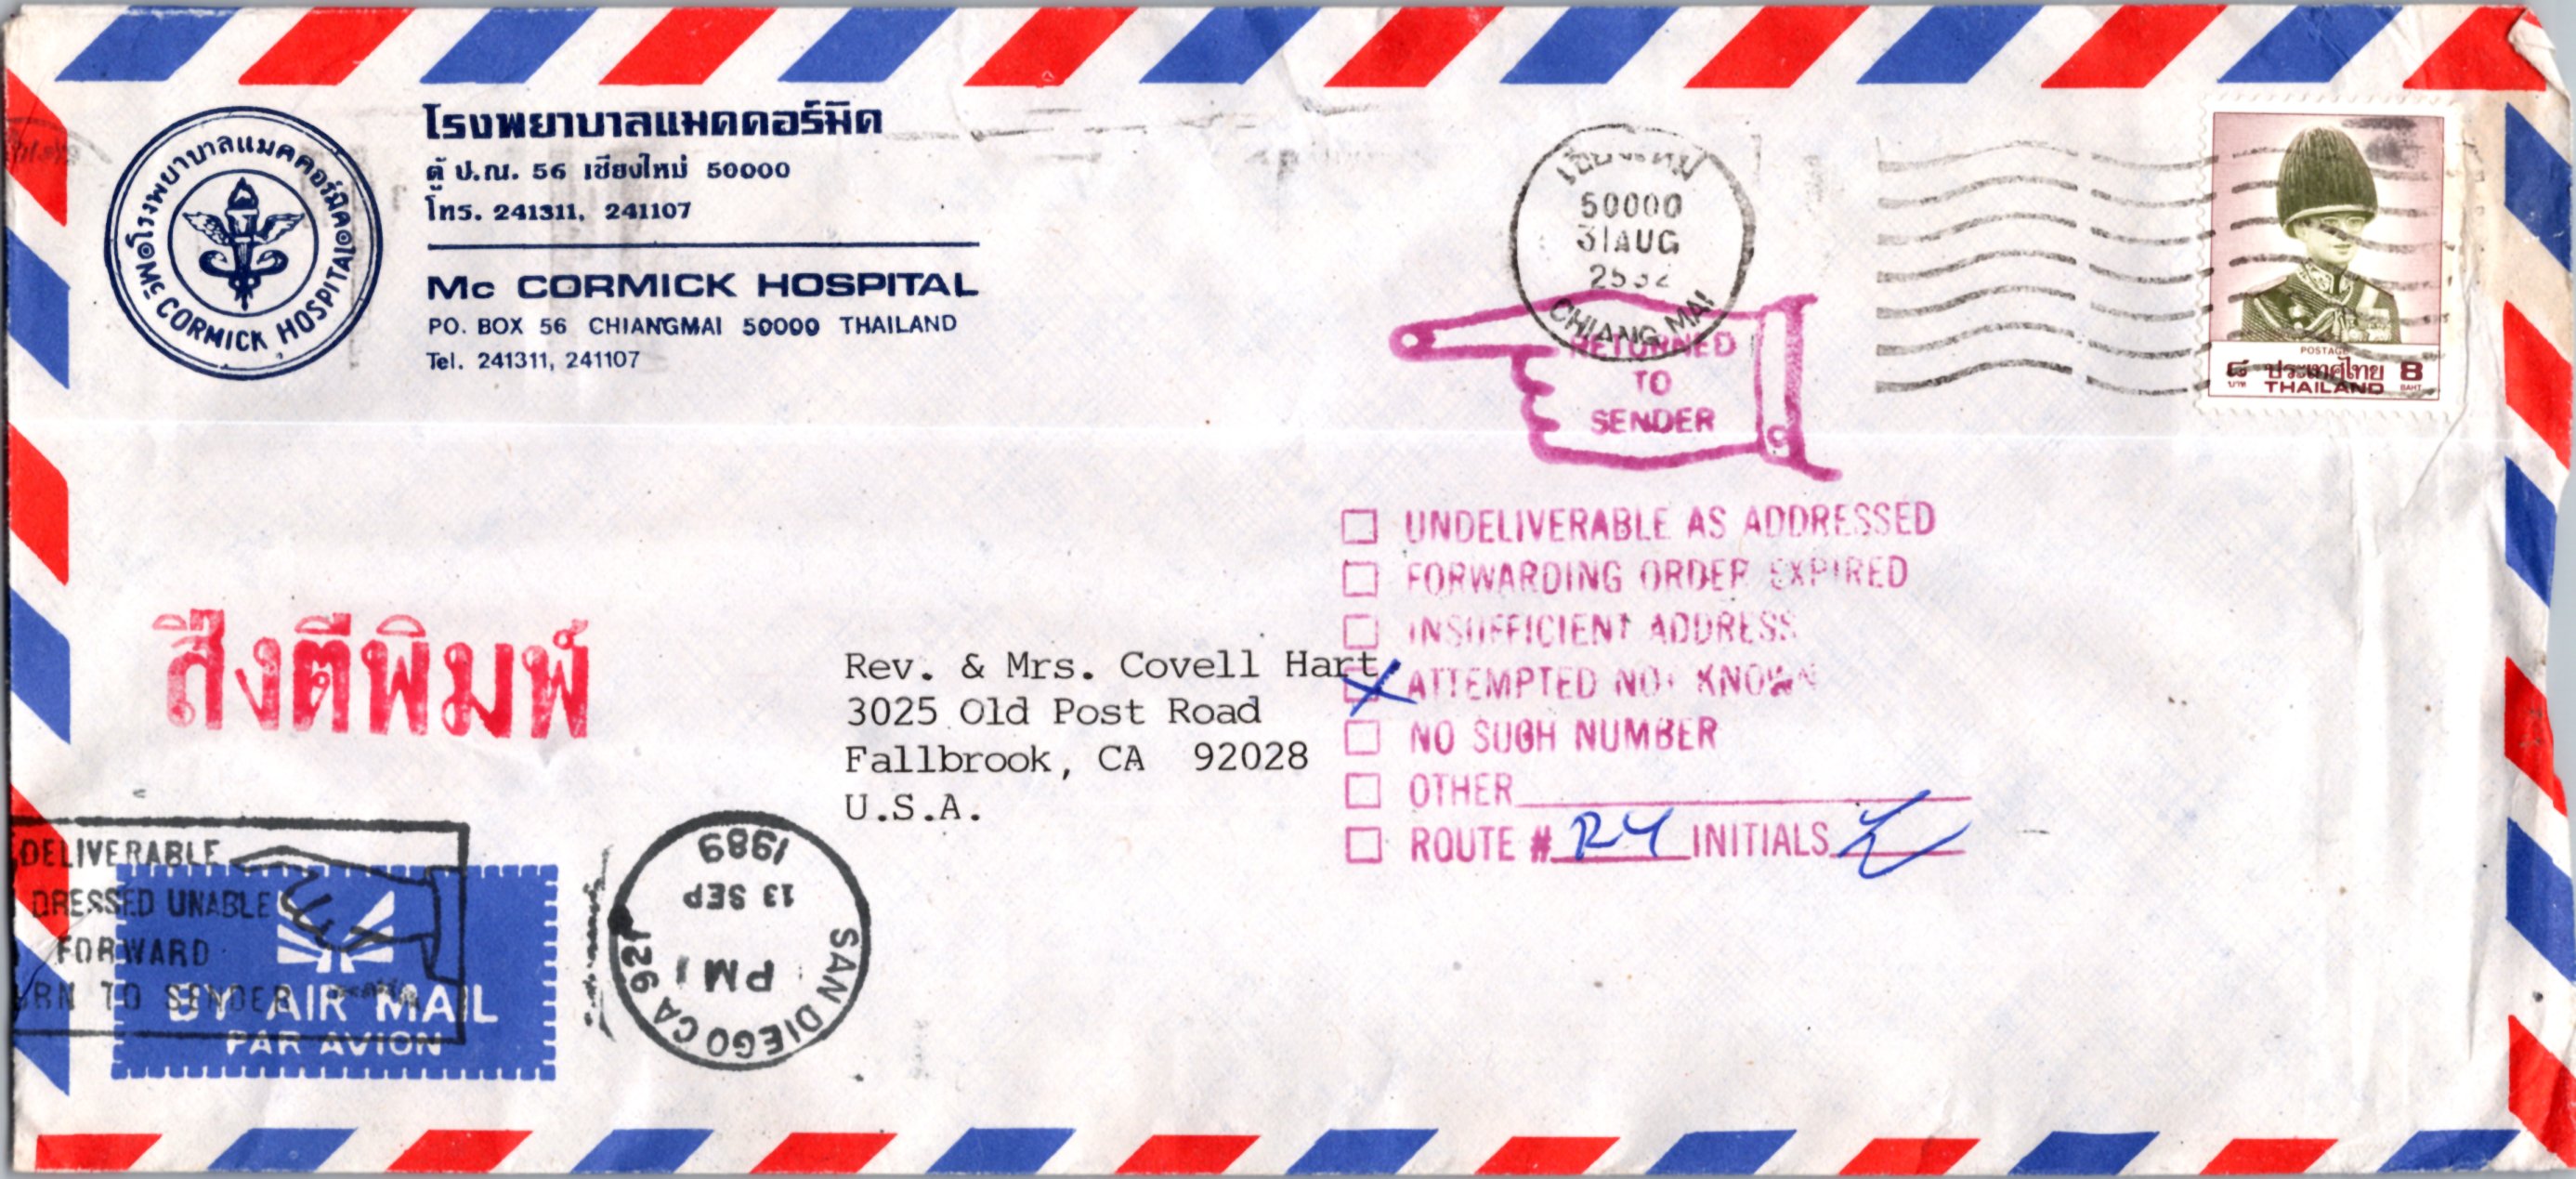 โรงพยาบาลแมคคอร์มิค
ตู้ ป.ณ. 56 เชียงใหม่ 50000
โทร. 241311, 241107
Mc CORMICK HOSPITAL
PO. BOX 56 CHIANGMAI 50000 THAILAND
Tel. 241311, 241107
โรงพยาบาลแมคคอร์มิค
Mc CORMICK HOSPITAL
เชียงใหม่
50000
31 AUG
2532
CHIANG MAI
POSTAGE
๘ ประเทศไทย 8
บาท THAILAND BAHT
RETURNED
TO
SENDER
UNDELIVERABLE AS ADDRESSED
FORWARDING ORDER EXPIRED
INSUFFICIENT ADDRESS
ATTEMPTED NOT KNOWN
NO SUCH NUMBER
OTHER
ROUTE # R4 INITIALS
สิ่งตีพิมพ์
Rev. & Mrs. Covell Hart
3025 Old Post Road
Fallbrook, CA 92028
U.S.A.
DELIVERABLE
DRESSED UNABLE
FORWARD
RN TO SENDER
BY AIR MAIL
PAR AVION
SAN DIEGO CA 921
PM
13 SEP
1989